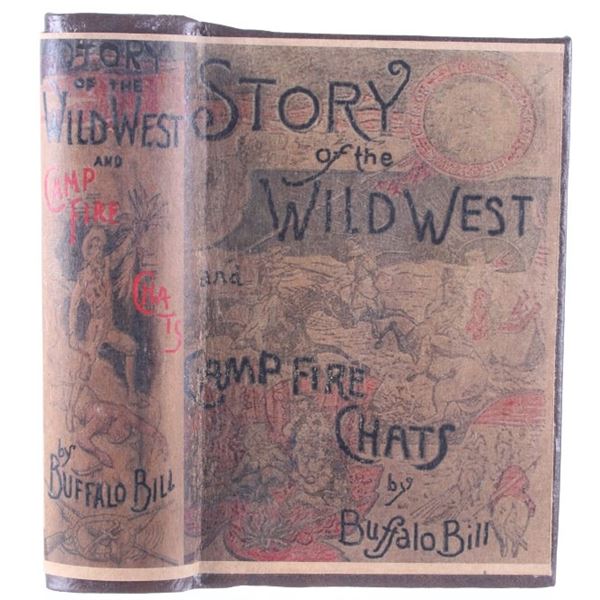 STORY
OF THE
WILD WEST
AND
CAMP
FIRE
CHATS
by
BUFFALO BILL
STORY
of the
WILD WEST
and
CAMP FIRE
CHATS
by
Buffalo Bill